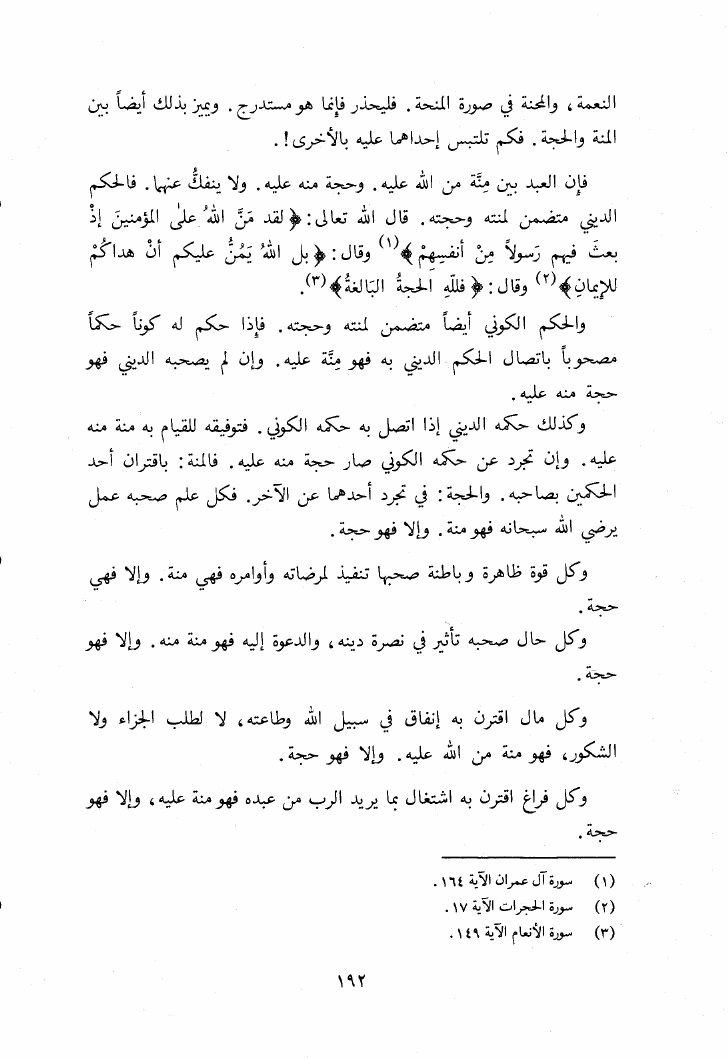 النعمة، والمحنة في صورة المنحة. فليحذر فإنما هو مستدرج. ويميز بذلك أيضاً بين
المنة والحجة. فكم تلتبس إحداهما عليه بالأخرى!.
فإن العبد بين مِنَّة من الله عليه. وحجة منه عليه. ولا ينفكُّ عنها. فالحكم
الديني متضمن لمنته وحجته. قال الله تعالى: ﴿لقد مَنَّ اللهُ على المؤمنينَ إذْ
بعثَ فيهم رَسولاً مِنْ أنفسِهِمْ﴾(١) وقال: ﴿بل اللهُ يَمُنُّ عليكم أنْ هداكُمْ
للإيمانِ﴾(٢) وقال: ﴿فللّهِ الحجةُ البَالغةُ﴾(٣).
والحكم الكوني أيضاً متضمن لمنته وحجته. فإذا حكم له كوناً حكماً
مصحوباً باتصال الحكم الديني به فهو مِنَّة عليه. وإن لم يصحبه الديني فهو
حجة منه عليه.
وكذلك حكمه الديني إذا اتصل به حكمه الكوني. فتوفيقه للقيام به منة منه
عليه. وإن تجرد عن حكمه الكوني صار حجة منه عليه. فالمنة: باقتران أحد
الحكمين بصاحبه. والحجة: في تجرد أحدهما عن الآخر. فكل علم صحبه عمل
يرضي الله سبحانه فهو منة. وإلا فهو حجة.
وكل قوة ظاهرة وباطنة صحبها تنفيذ لمرضاته وأوامره فهي منة. وإلا فهي
حجة.
وكل حال صحبه تأثير في نصرة دينه، والدعوة إليه فهو منة منه. وإلا فهو
حجة.
وكل مال اقترن به إنفاق في سبيل الله وطاعته، لا لطلب الجزاء ولا
الشكور، فهو منة من الله عليه. وإلا فهو حجة.
وكل فراغ اقترن به اشتغال بما يريد الرب من عبده فهو منة عليه، وإلا فهو
حجة.
(١) سورة آل عمران الآية ١٦٤.
(٢) سورة الحجرات الآية ١٧.
(٣) سورة الأنعام الآية ١٤٩.
١٩٢